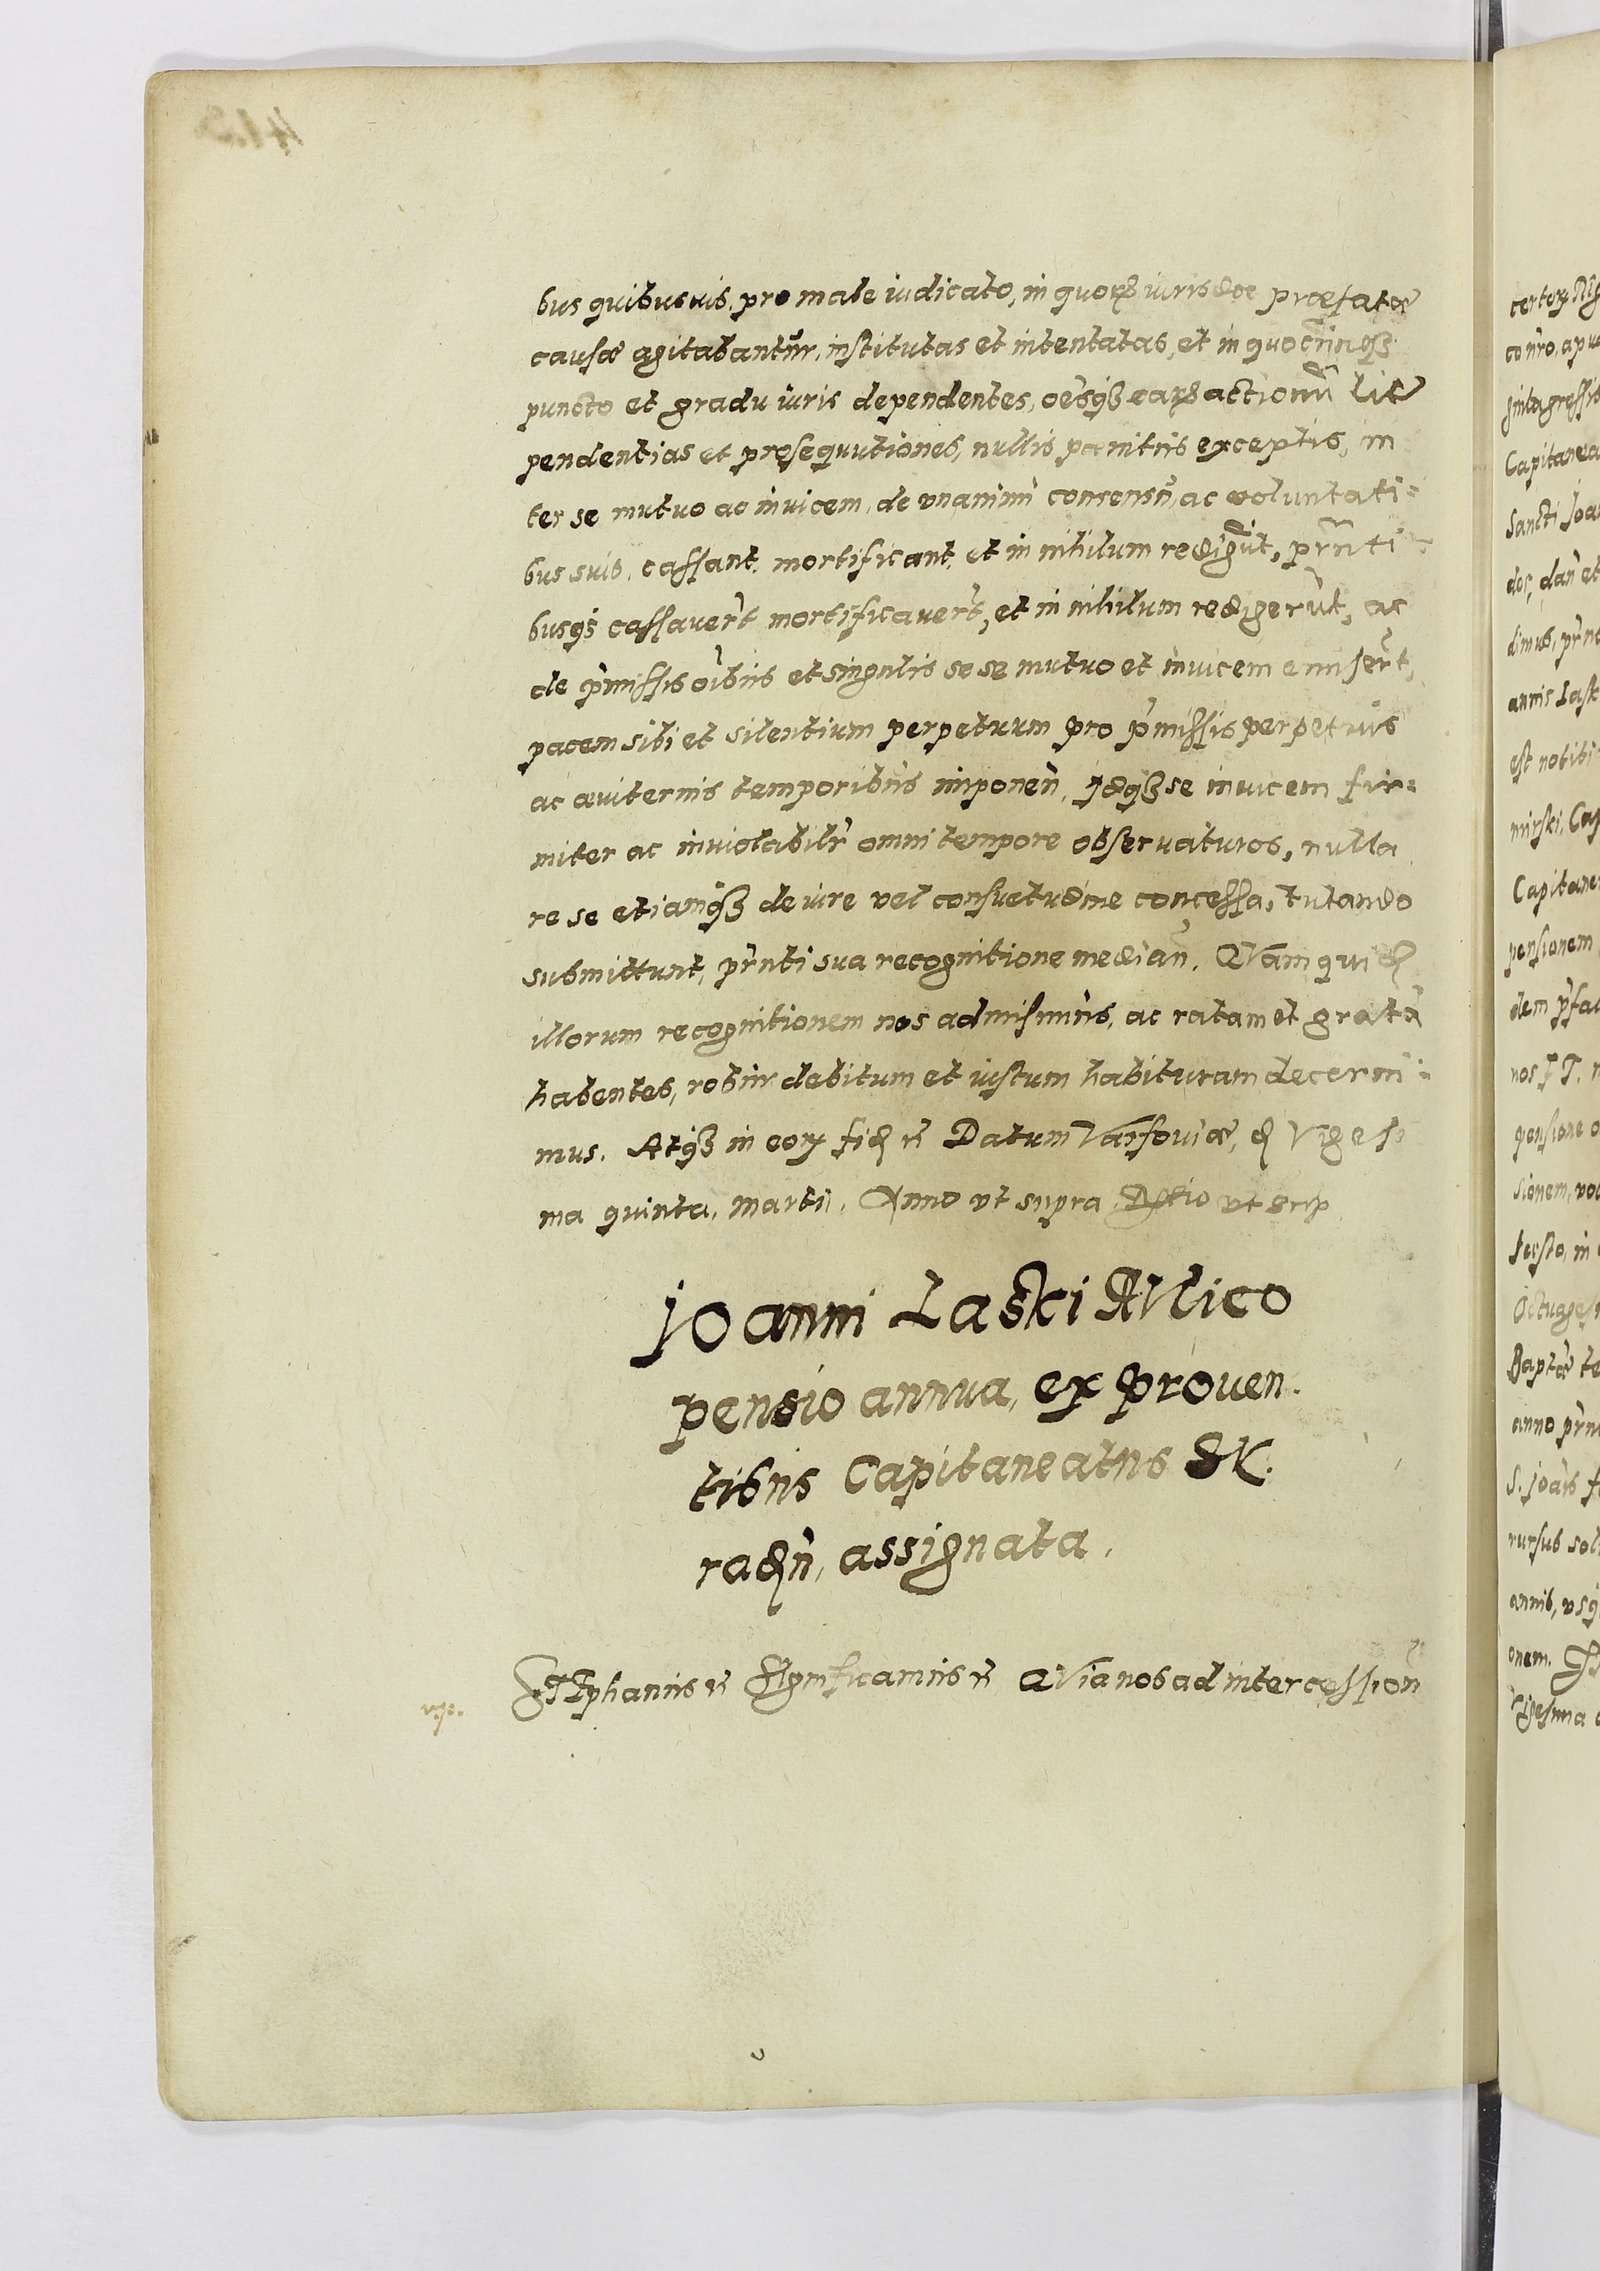 bus quibusuis, pro male iudicato, in quorũ iurisdõe præfatæ
causæ agitabantur, institutas et intentatas, et in quocũnqꝫ
puncto et gradu iuris dependentes, oẽsqꝫ earũ actionũ lite
pendentias et prosequutiones, nullis pœnitus exceptis, in
ter se mutuo ac inuicem, de vnanimi consensu, ac voluntati=
bus suis, cassant, mortificant, et in nihilum redigũt, prñti
busqꝫ cassauer̃t mortificauer̃t, et in nihilum redigerũt, ac
de p̃missis oĩbus et singulis se se mutuo et inuicem emiser̃t,
pacem sibi et silentium perpetuum pro p̃missis perpetuis
ac æuiternis temporibus imponeñ, idqꝫ se inuicem fir=
miter ac inuiolabilr̃ omni tempore obseruaturos, nulla
re se etiamqꝫ de iure vel consuetudine concessa, tutando
submittunt, prñti sua recognitione mediañ. Quam quidem
illorum recognitionem nos admisimus, ac ratam et gratã
habentes, robur debitum et iustum habituram decerni=
mus. Atqꝫ in eorꝝ fidem etc Datum Varsouiæ, die Vigesi
ma quinta, Martii, Anno vt supra, vt supra
Joanni Laski Aulico
pensio annua, ex prouen
tibus Capitaneatus
assignata.
Stephanus etc Significamus etc Quia nos ad intercessioñ
certorꝝ
coñro, apu
Capitanea
Sancti Joa
dos, dañ et
dimus, prñ
annis Lask
est nobili
mirski, Cap
Capitane
pensionem
dem p̃fa
pensione
sionem, vo
festo, in
anno prñ
S. Joãis f
rursus sol
annis, vsq
onem.